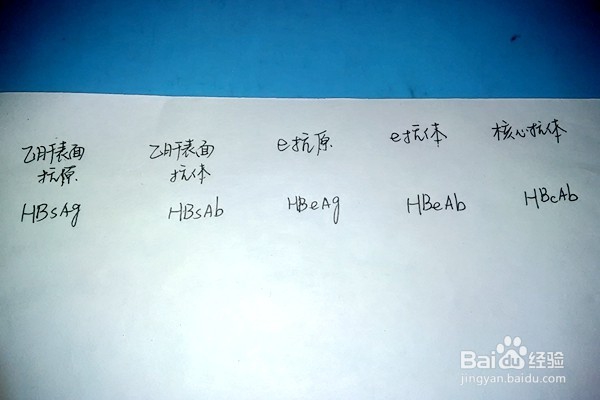 乙肝表面 乙肝表面 e抗原 e抗体 核心抗体
抗原 抗体
HBsAg HBsAb HBeAg HBeAb HBcAb
Baidu经验
jingyan.baidu.com